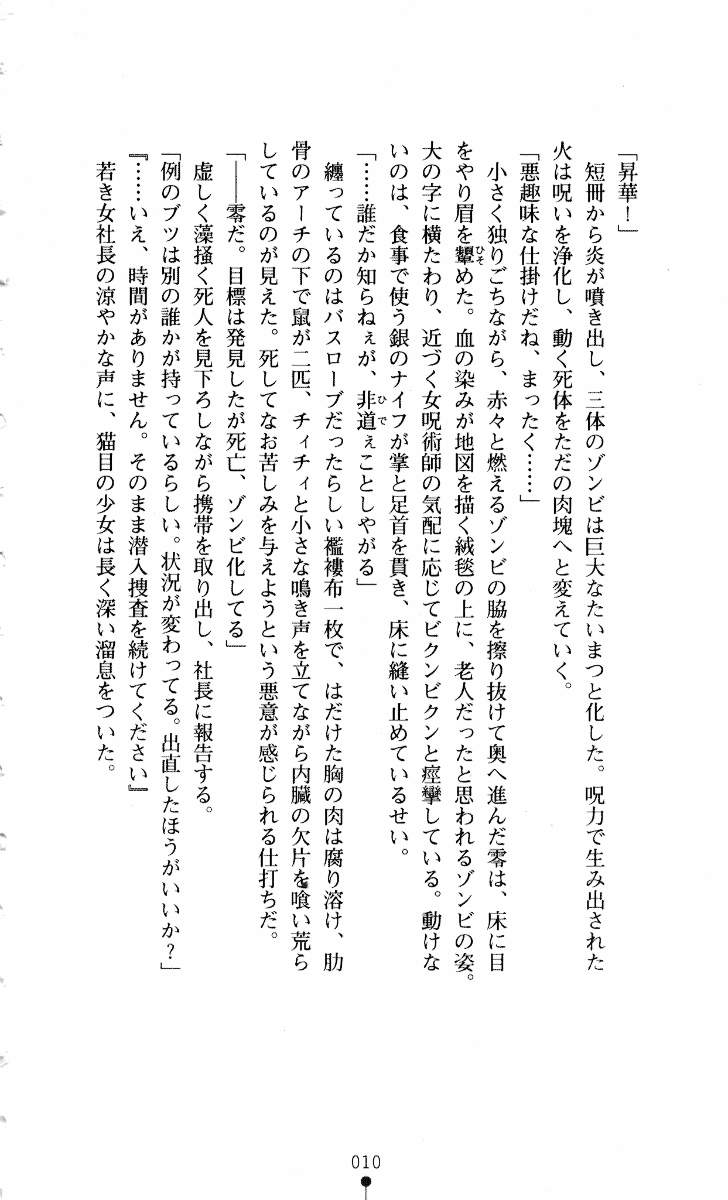 「昇華！」
　短冊から炎が噴き出し、三体のゾンビは巨大なたいまつと化した。呪力で生み出された
火は呪いを浄化し、動く死体をただの肉塊へと変えていく。
「悪趣味な仕掛けだね、まったく……」
　小さく独りごちながら、赤々と燃えるゾンビの脇を擦り抜けて奥へ進んだ零は、床に目
をやり眉を顰ひそめた。血の染みが地図を描く絨毯の上に、老人だったと思われるゾンビの姿。
大の字に横たわり、近づく女呪術師の気配に応じてビクンビクンと痙攣している。動けな
いのは、食事で使う銀のナイフが掌と足首を貫き、床に縫い止めているせい。
「……誰だか知らねぇが、非道ひでぇことしやがる」
　纏っているのはバスローブだったらしい襤褸布一枚で、はだけた胸の肉は腐り溶け、肋
骨のアーチの下で鼠が二匹、チィチィと小さな鳴き声を立てながら内臓の欠片を喰い荒ら
しているのが見えた。死してなお苦しみを与えようという悪意が感じられる仕打ちだ。
「――零だ。目標は発見したが死亡、ゾンビ化してる」
　虚しく藻掻く死人を見下ろしながら携帯を取り出し、社長に報告する。
「例のブツは別の誰かが持っているらしい。状況が変わってる。出直したほうがいいか？」
『……いえ、時間がありません。そのまま潜入捜査を続けてください』
　若き女社長の涼やかな声に、猫目の少女は長く深い溜息をついた。
010